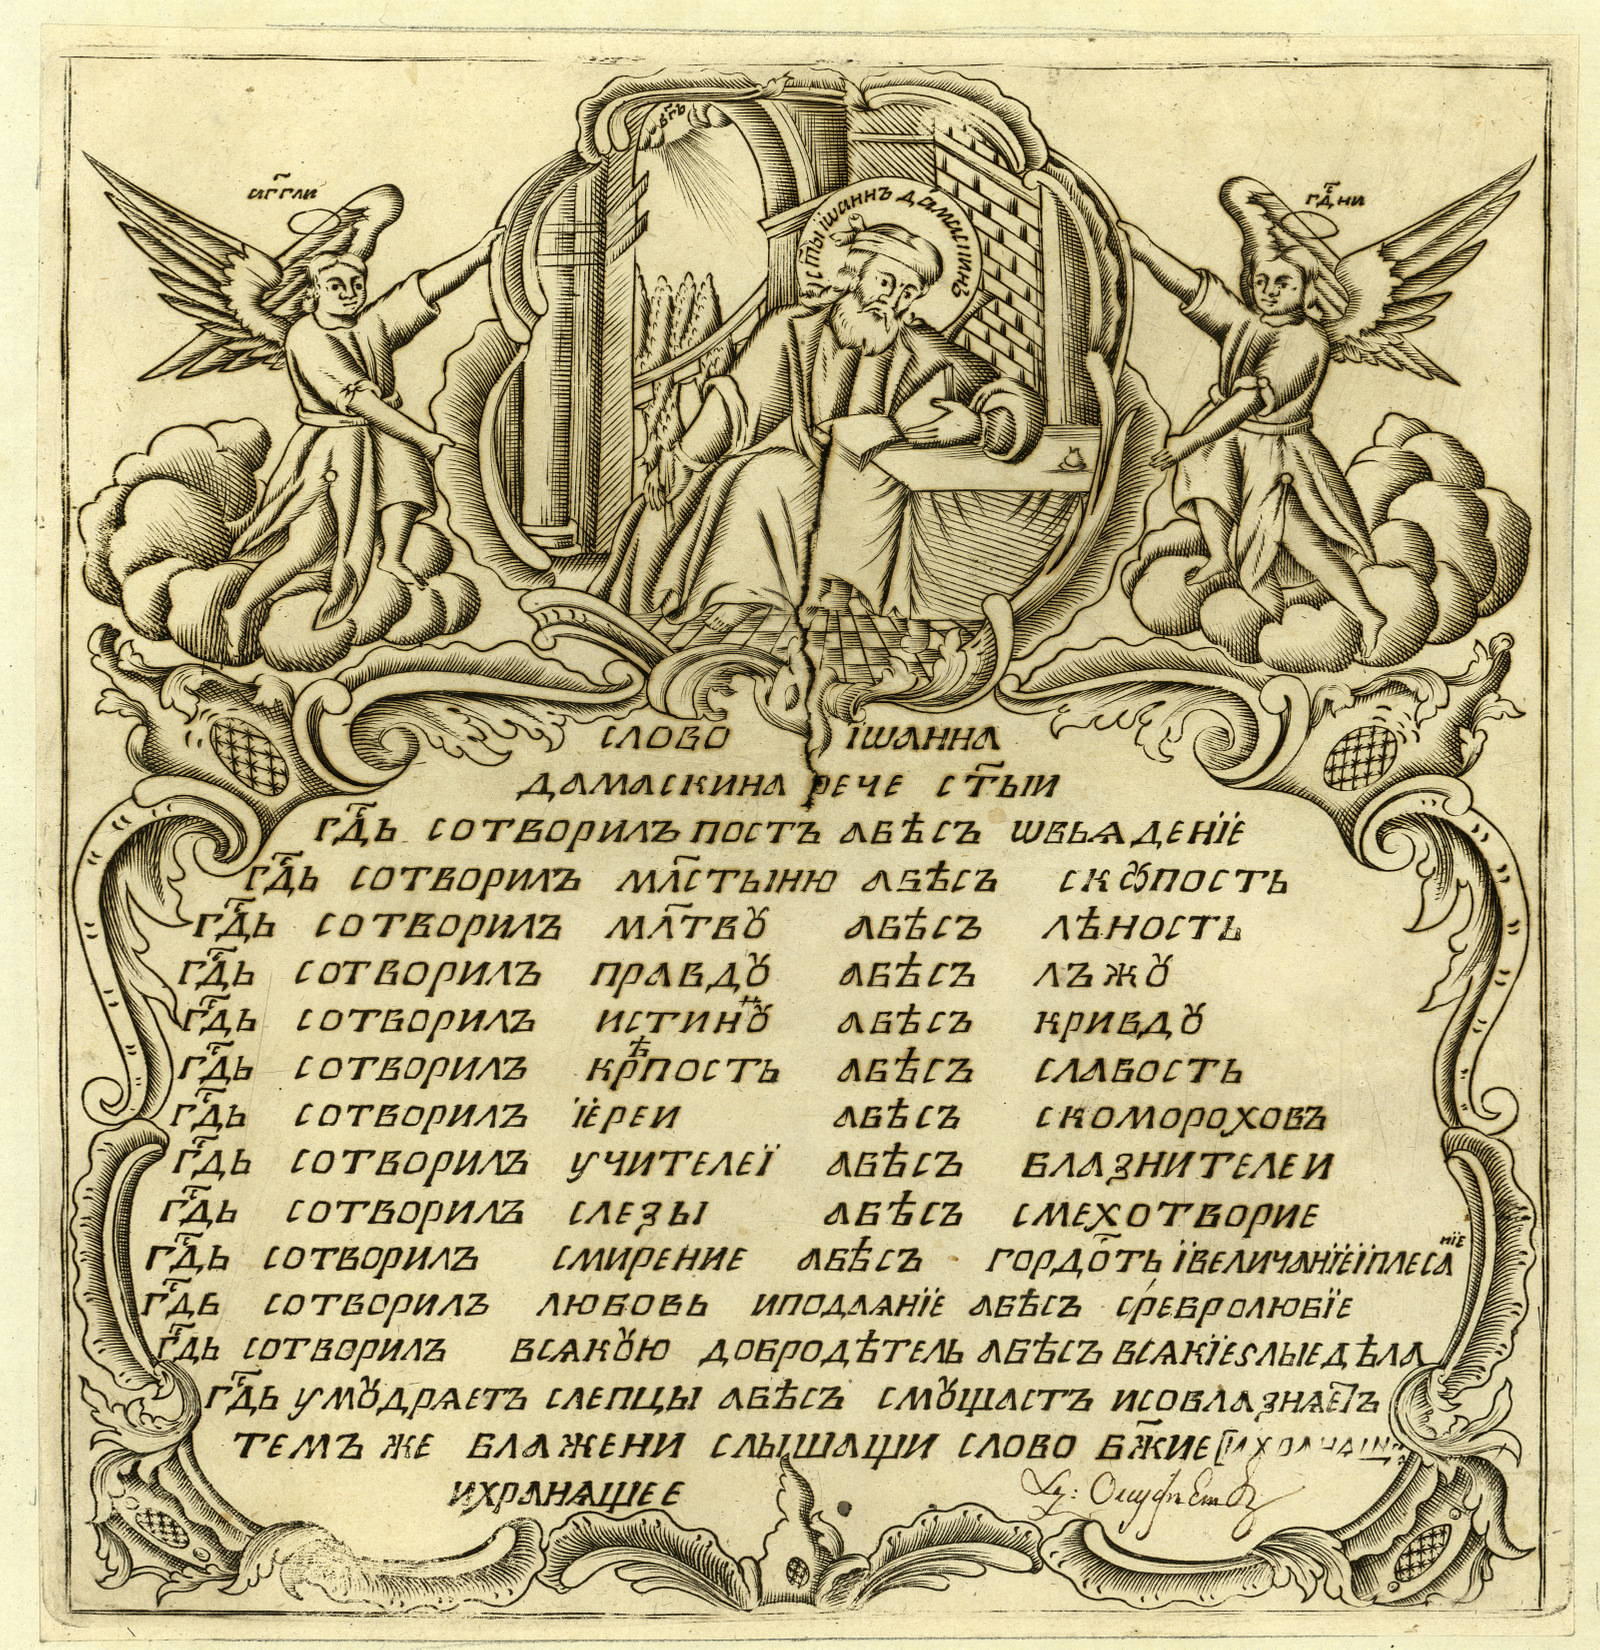 бг҃ъ
аг҃гли
гд҃ни
ст҃ы їѡаннъ дамаскинъ
слово їѡанна
дамаскина рече ст҃ыи
гд҃ь сотворилъ постъ абѣсъ ѡбьядениїе
гд҃ь сотворилъ мл҃стыню абѣсъ скꙋпость
гд҃ь сотворилъ мл҃твꙋ абѣсъ лѣность
гд҃ь сотворилъ правдꙋ абѣсъ лъжꙋ
гд҃ь сотворилъ истиннꙋ абѣсъ кривдꙋ
гд҃ь сотворилъ крѣпость абѣсъ слабость
гд҃ь сотворилъ їереи абѣсъ скомороховъ
гд҃ь сотворилъ учителеї абѣсъ блазнителеи
гд҃ь сотворилъ слезы абѣсъ смехотворие
гд҃ь сотворилъ смирение абѣсъ гордо҃ть ївеличанїеїплесанїе
гд҃ь сотворилъ любовь иподаянїе абѣсъ сребролюбїе
гд҃ь сотворилъ всякꙋю добродѣтель абѣсъ всякїеѕлыедѣла
гд҃ь умꙋдряетъ слепцы абѣсъ смꙋщаетъ исоблазняетъ
темъ же блажени слышащи слово бж҃ие
ихранящее